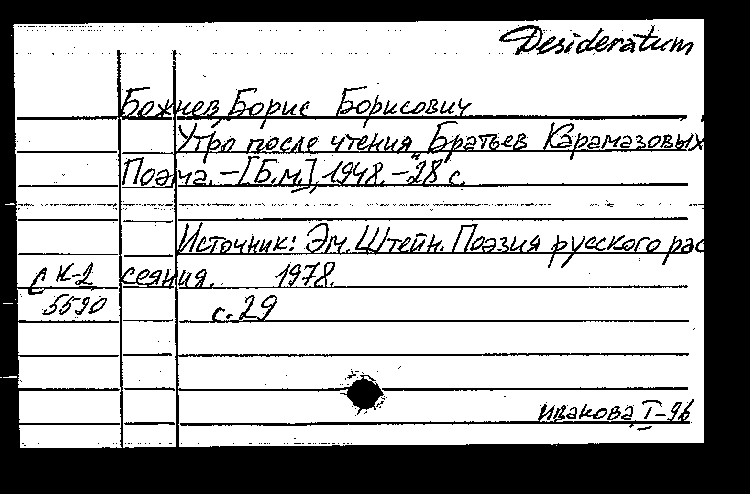 Desideratum
Божнев, Борис Борисович
Утро после чтения „Братьев Карамазовых
Поэма. – [Б.м.], 1948. – 28 с.
Источник: Эм. Штейн. Поэзия русского рас
С К-2 сеяния. 1978.
5590 с. 29
Иванова, I-96